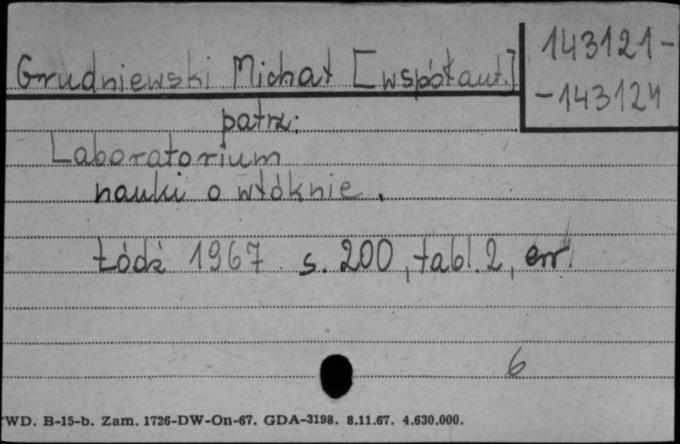 Grudniewski Michał [współaut.]
143121-
-143124
patrz:
Laboratorium
nauki o włóknie.
Łódź 1967 s. 200, tabl. 2, err.
6
WD. B-15-b. Zam. 1726-DW-On-67. GDA-3198. 8.11.67. 4.630.000.